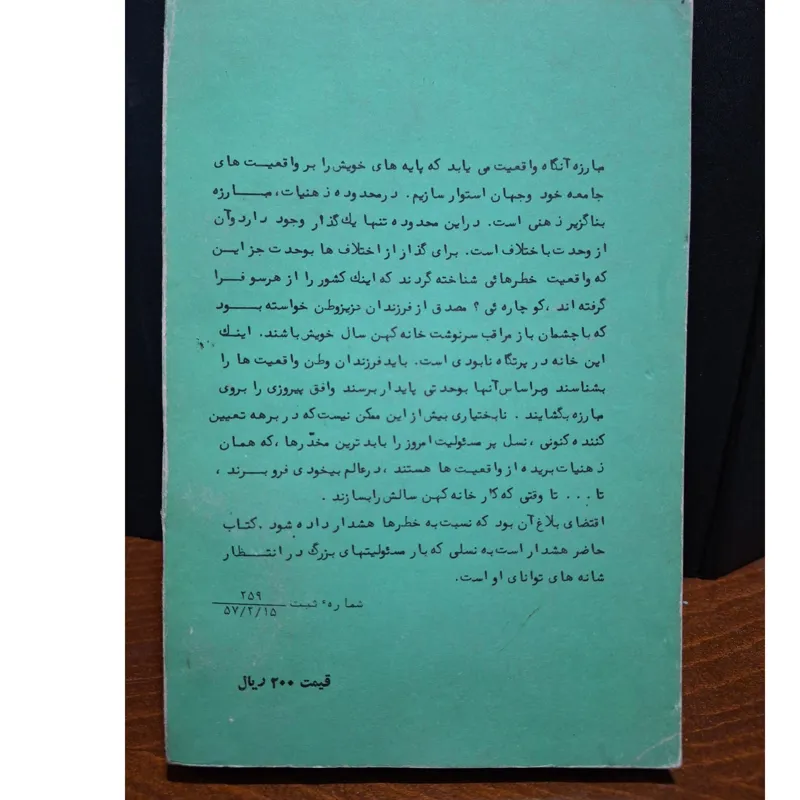 مبارزه آنگاه واقعیت می یابد که پایه های خویش را بر واقعیت های
جامعه خود وجهان استوار سازیم. درمحدوده ذهنیات، مبارزه
بناگزیر ذهنی است. دراین محدوده تنها یك گذار وجود دارد وآن
از وحدت باختلاف است. برای گذار از اختلاف ها بوحدت جز این
که واقعیت خطرهائی شناخته گردند که اینك کشور را از هرسو فرا
گرفته اند، کو چاره ئی؟ مصدق از فرزندان عزیزوطن خواسته بود
که باچشمان باز مراقب سرنوشت خانه کهن سال خویش باشند. اینك
این خانه در پرتگاه نابودی است. باید فرزندان وطن واقعیت ها را
بشناسند وبراساس آنها بوحدتی پایدار برسند وافق پیروزی را بروی
مبارزه بگشایند. نابختیاری بیش از این ممکن نیست که در برهه تعیین
کننده کنونی، نسل پر مسئولیت امروز را بابد ترین مخدّرها، که همان
ذهنیات بریده از واقعیت ها هستند، درعالم بیخودی فرو برند،
تا ... تا وقتی که کار خانه کهن سالش رابسازند.
اقتضای بلاغ آن بود که نسبت به خطرها هشدار داده شود. کتاب
حاضر هشدار است به نسلی که بار مسئولیتهای بزرگ در انتظار
شانه های توانای او است.
شماره ثبت ۲۵۹
۵۷/۲/۱۵
قیمت ۲۰۰ ریال